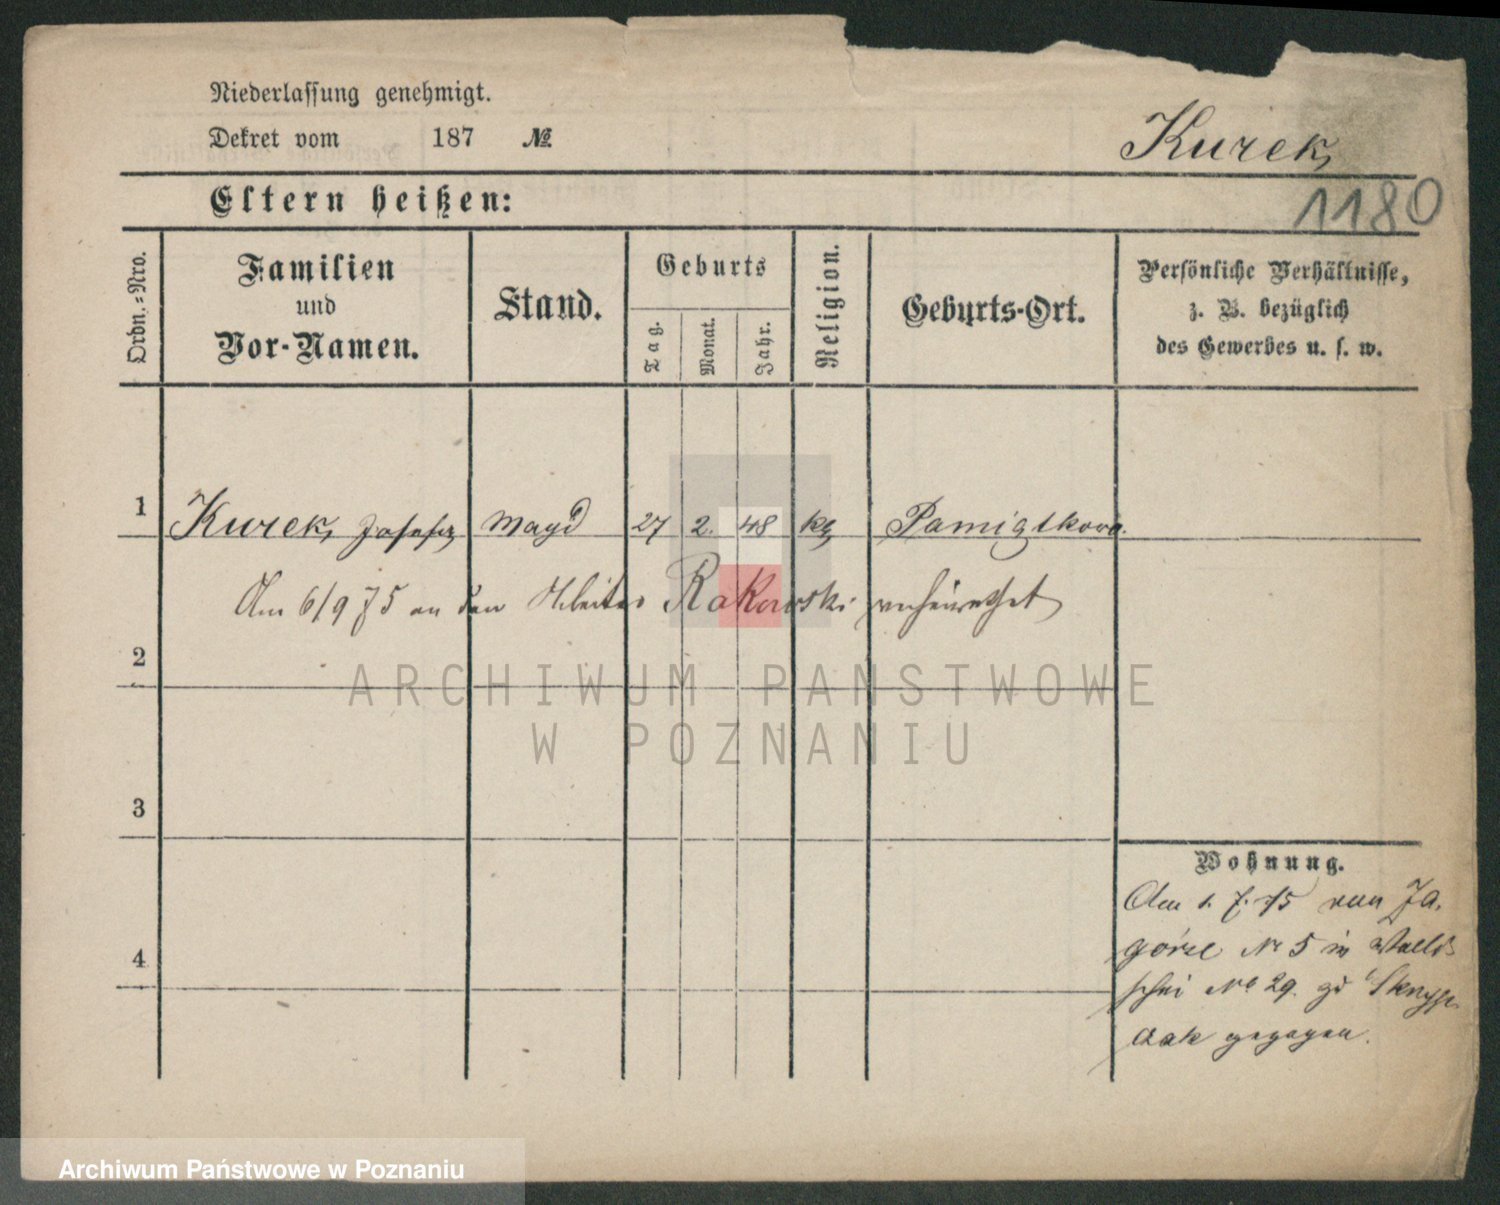 Niederlassung genehmigt.
Dekret vom 187 №
Kurek,
Eltern heißen:
1180
Ordn.-Nro.
Familien und Vor-Namen.
Stand.
Geburts
Tag.
Monat.
Jahr.
Religion.
Geburts-Ort.
Persönliche Verhältnisse,
z. B. bezüglich
des Gewerbes u. s. w.
1 Kurek, Josefa Magd 27 2. 48 Pamiątkowo.
Am 6/9 75 an den Arbeiter Rakowski verheirathet
2
ARCHIWUM PAŃSTWOWE
W POZNANIU
3
Wohnung.
Am 1. 7. 75 von Za-
górze № 5 in
4
№ 29.
gezogen.
Archiwum Państwowe w Poznaniu